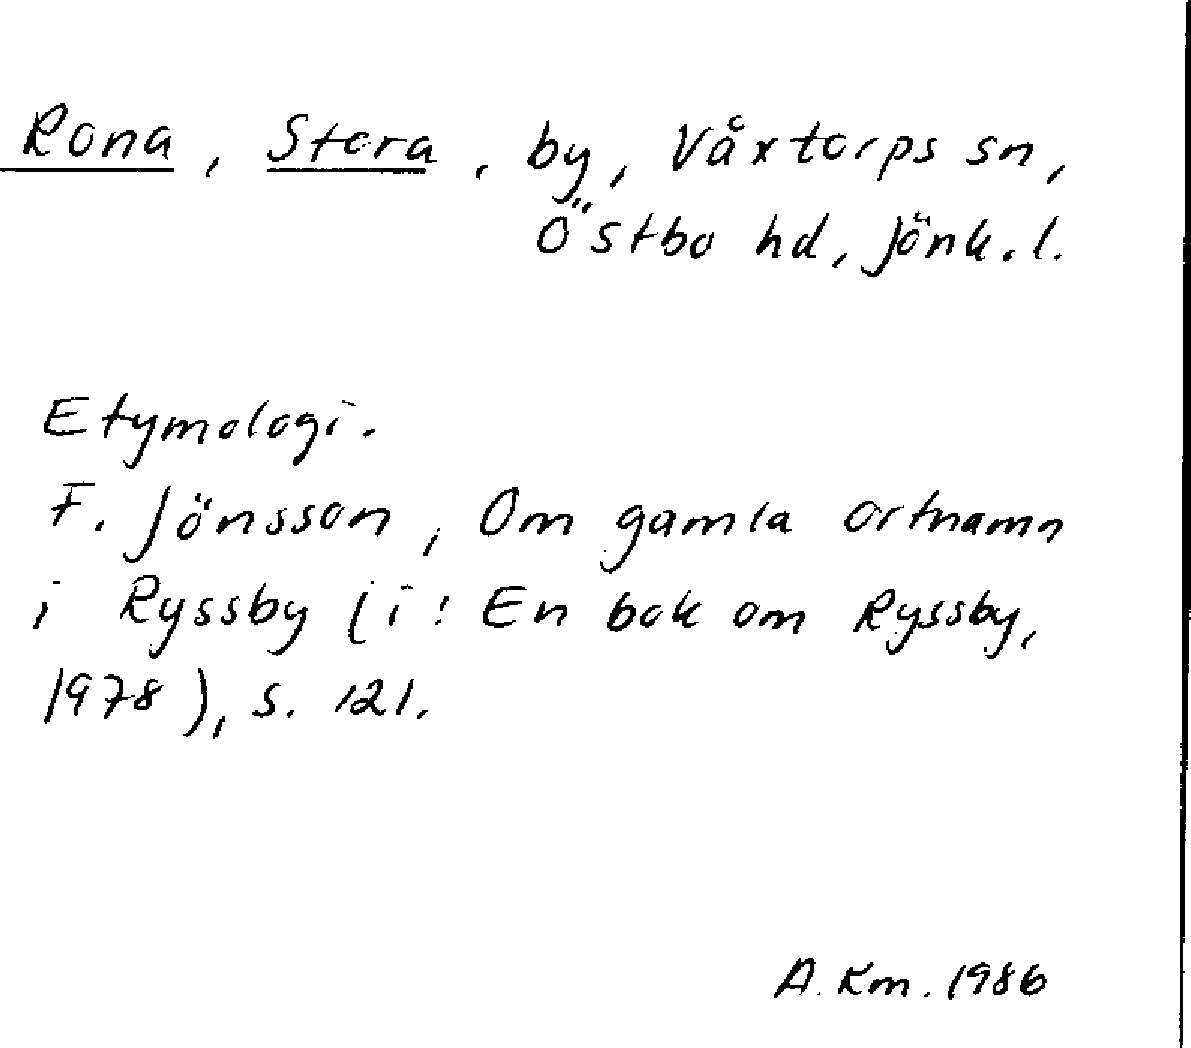 Rona, Stora, by, Våxtorps sn,
Östbo hd, Jönk.l.
Etymologi.
F. Jönsson, Om gamla ortnamn
i Ryssby (i: En bok om Ryssby,
1978), s. 121.
A. Km. 1986